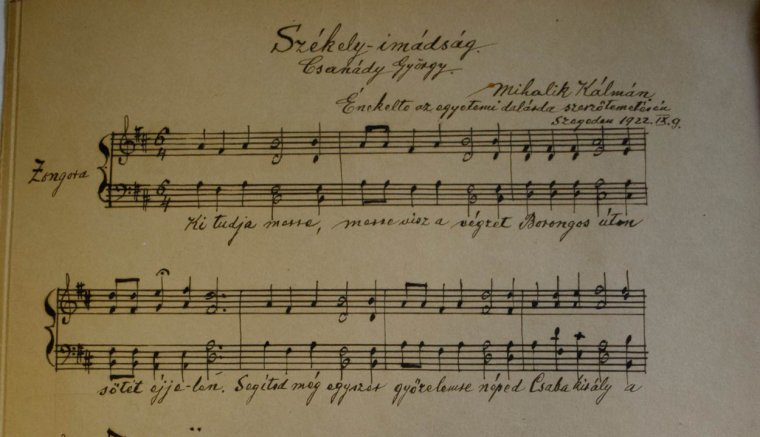 Székely-imádság.
Csanády György.
Mihalik Kálmán.
Énekelte az egyetemi dalárda szerzőtemetésén
Szegeden 1922. IX. 9.
Zongora
6 4
6 4
Ki tudja merre, merre visz a végzet Borongos úton
sötét éjje-len. Segítsd még egyszer győzelemre néped Csaba király a